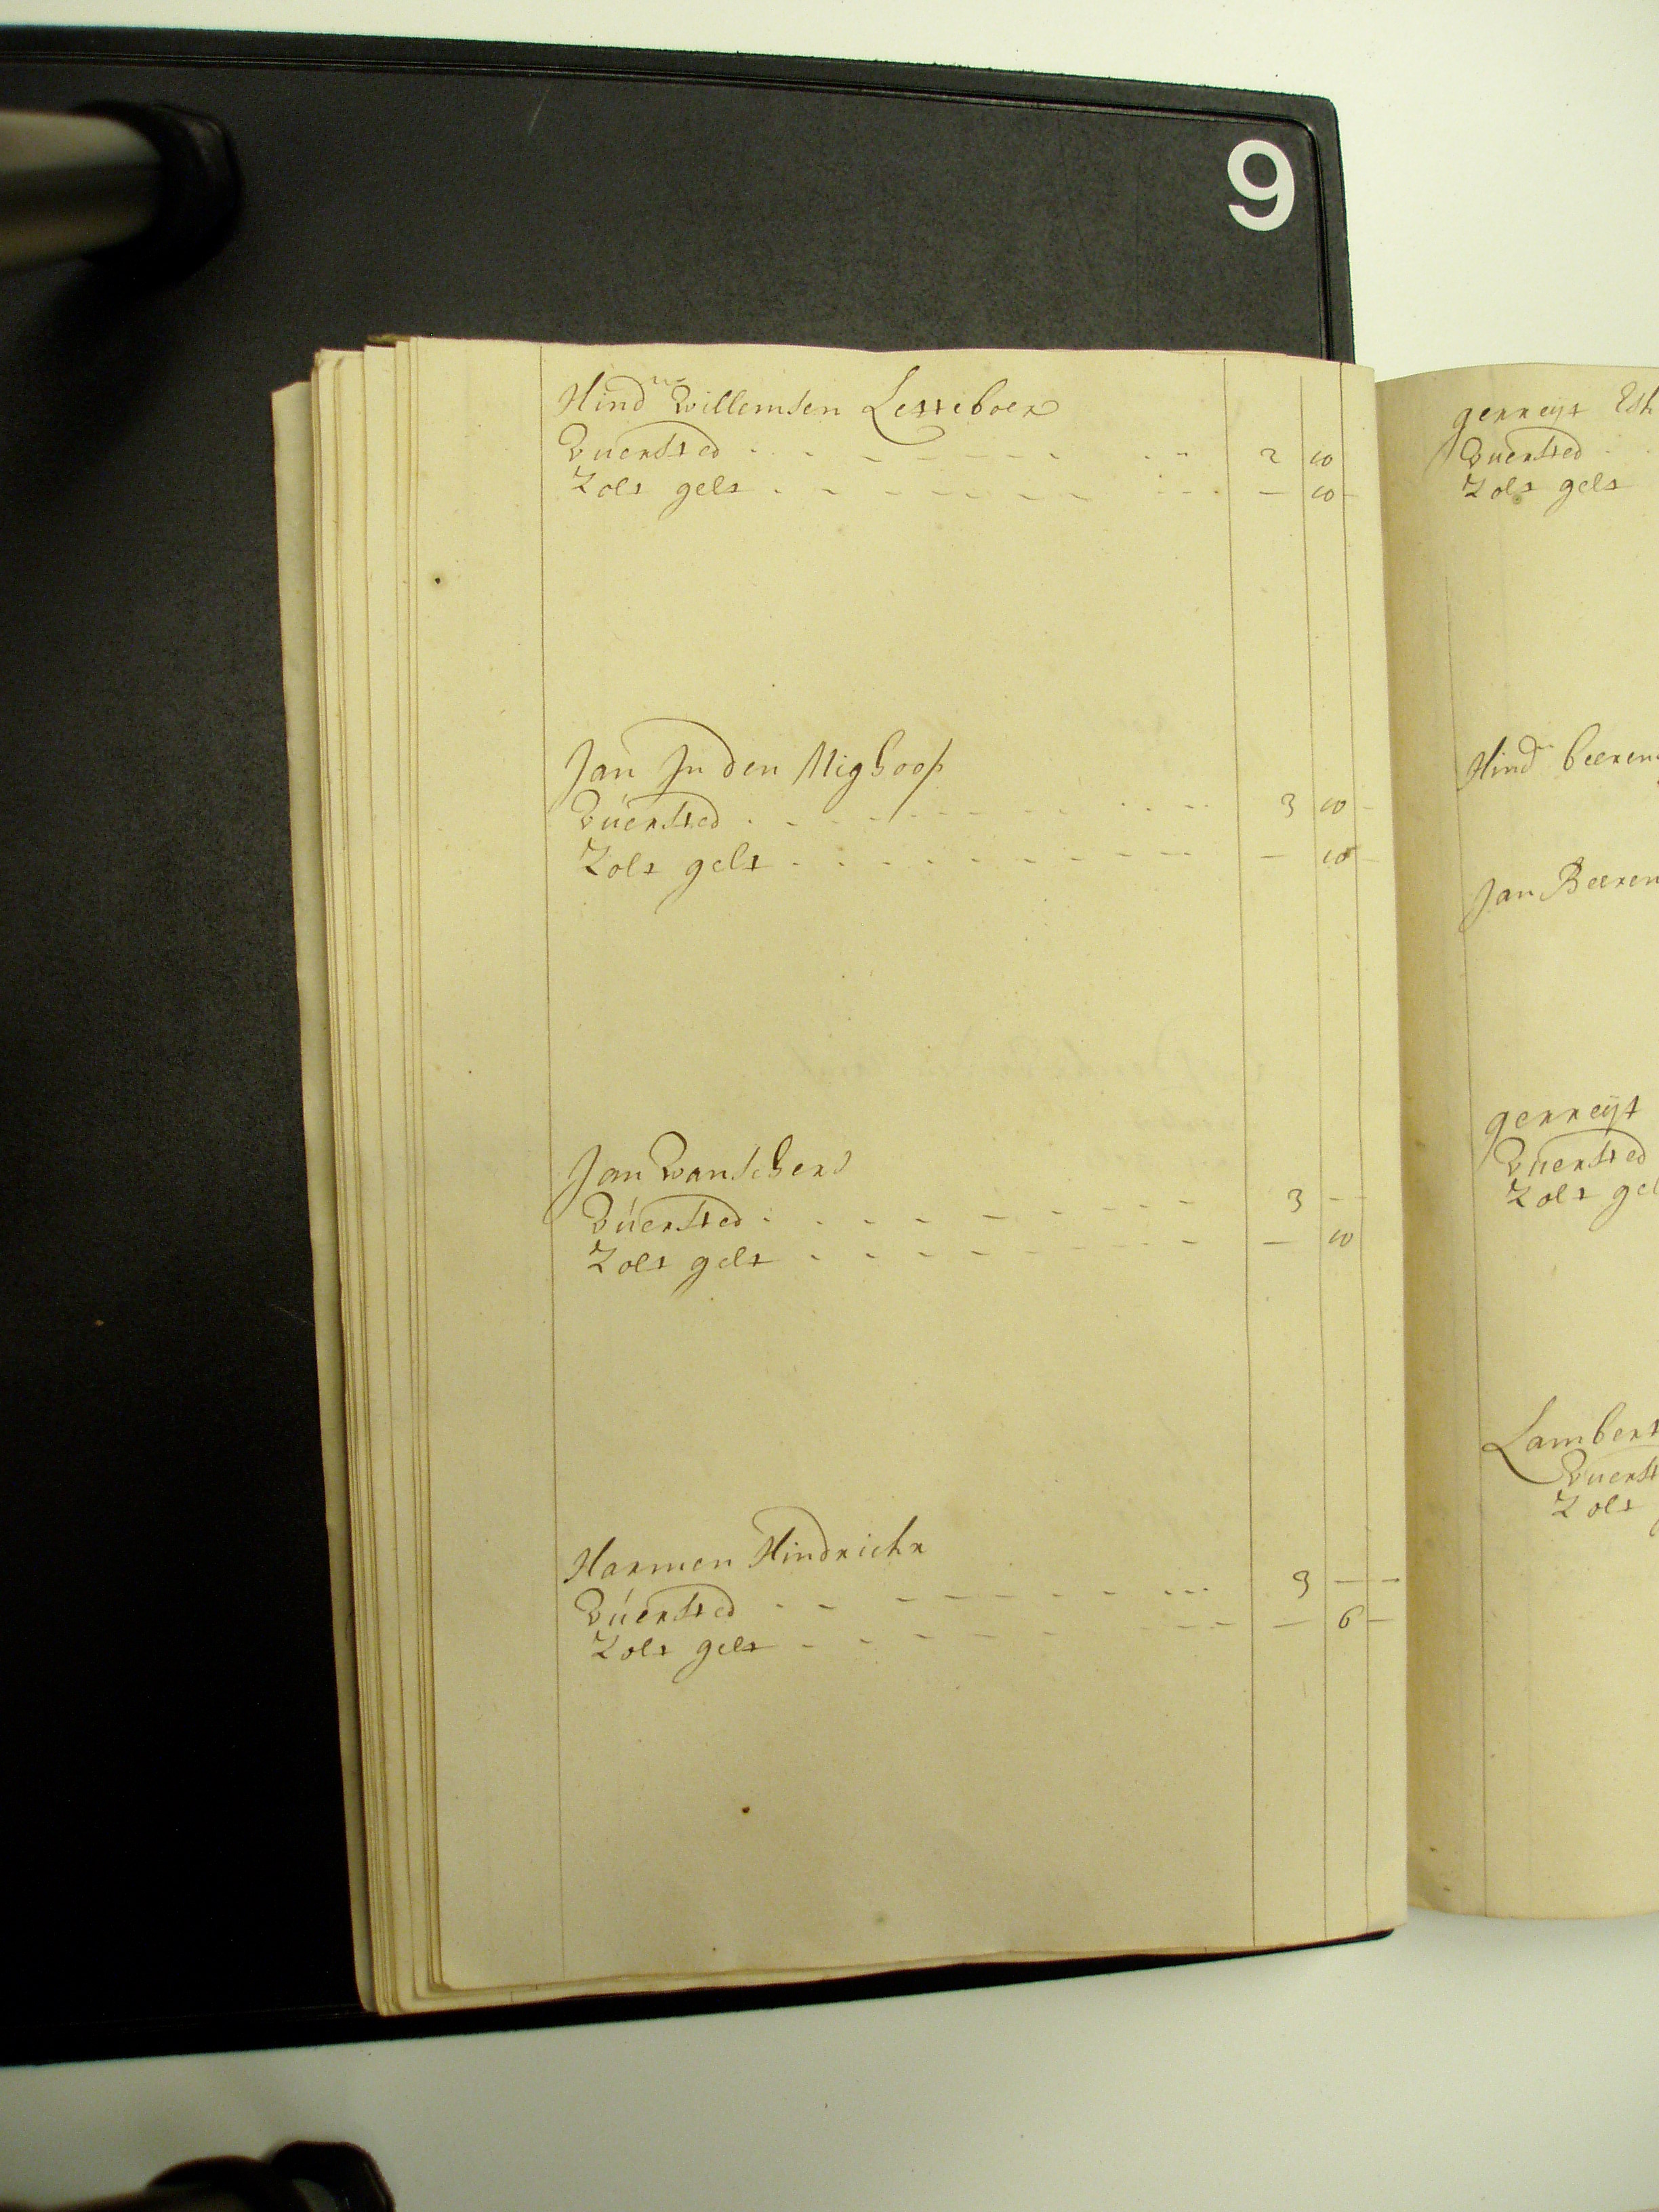 9
Hind Willemsen Letteboer
Vuersted 2 10
Zolt gelt — 10 —
Jan In den Mighoop
Vúersted 3 10 —
Zolt gelt — 10 —
Jan Wanschers
Vúersted 3 — —
Zolt gelt — 10
Harmen Hindrichs
Vúersted 3 — —
Zolt gelt — 6 —
gerreyt
Vuersted
Zolt gelt
Hind beeren
Jan Beeren
gerreyt
Vuersted
Zolt gel
Lambert
Vuerst
Zolt